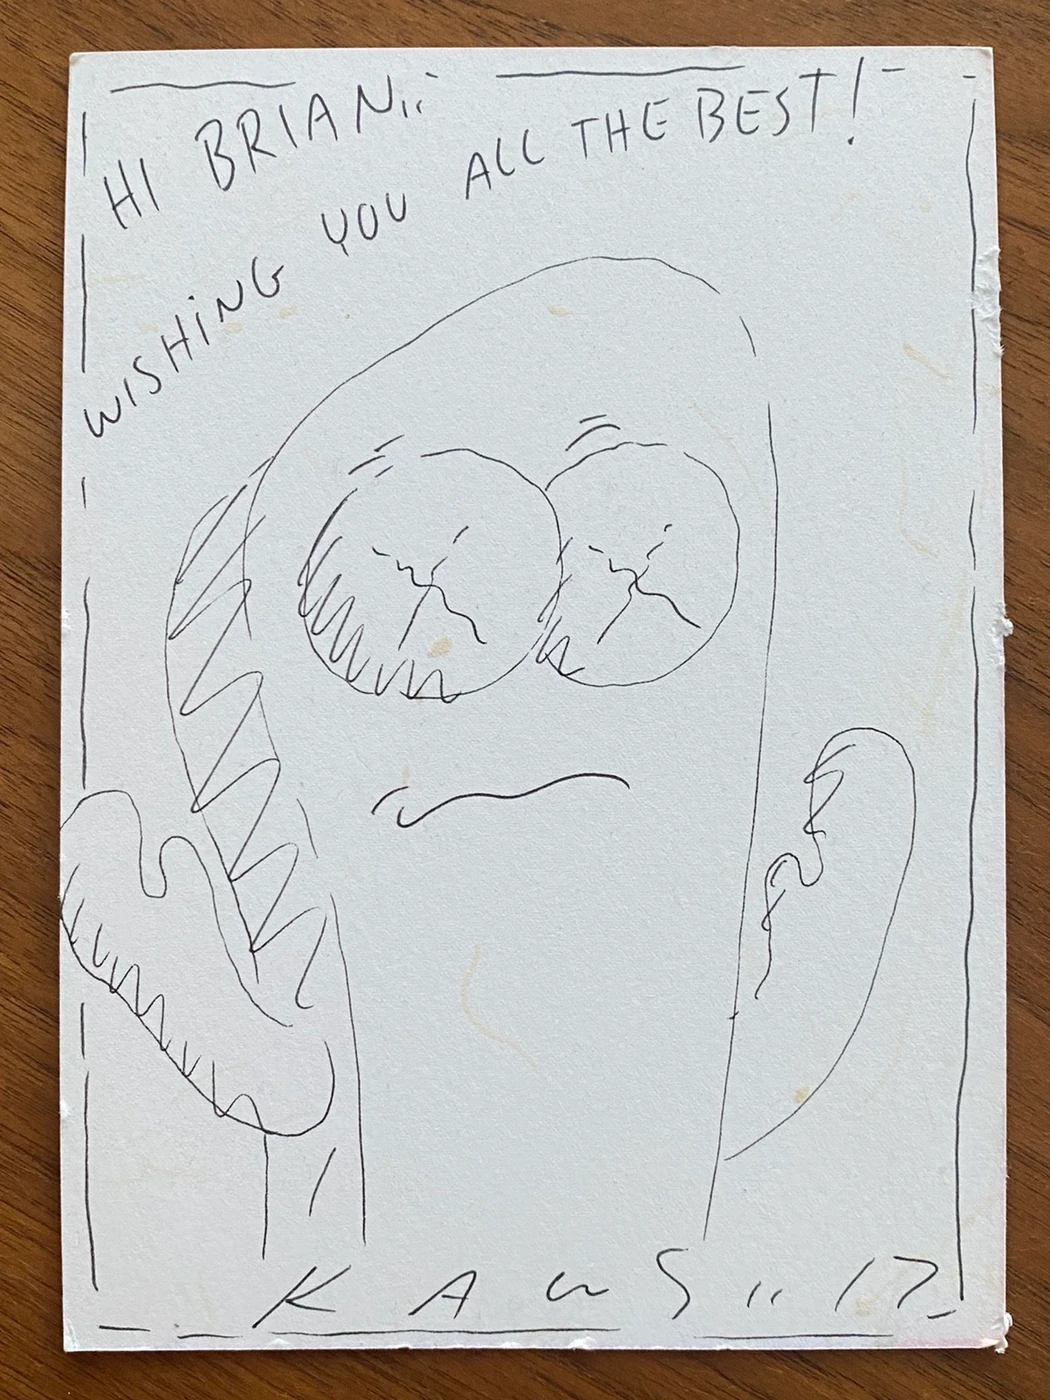 HI BRIAN..
WISHING YOU ALL THE BEST!
KAWS..17